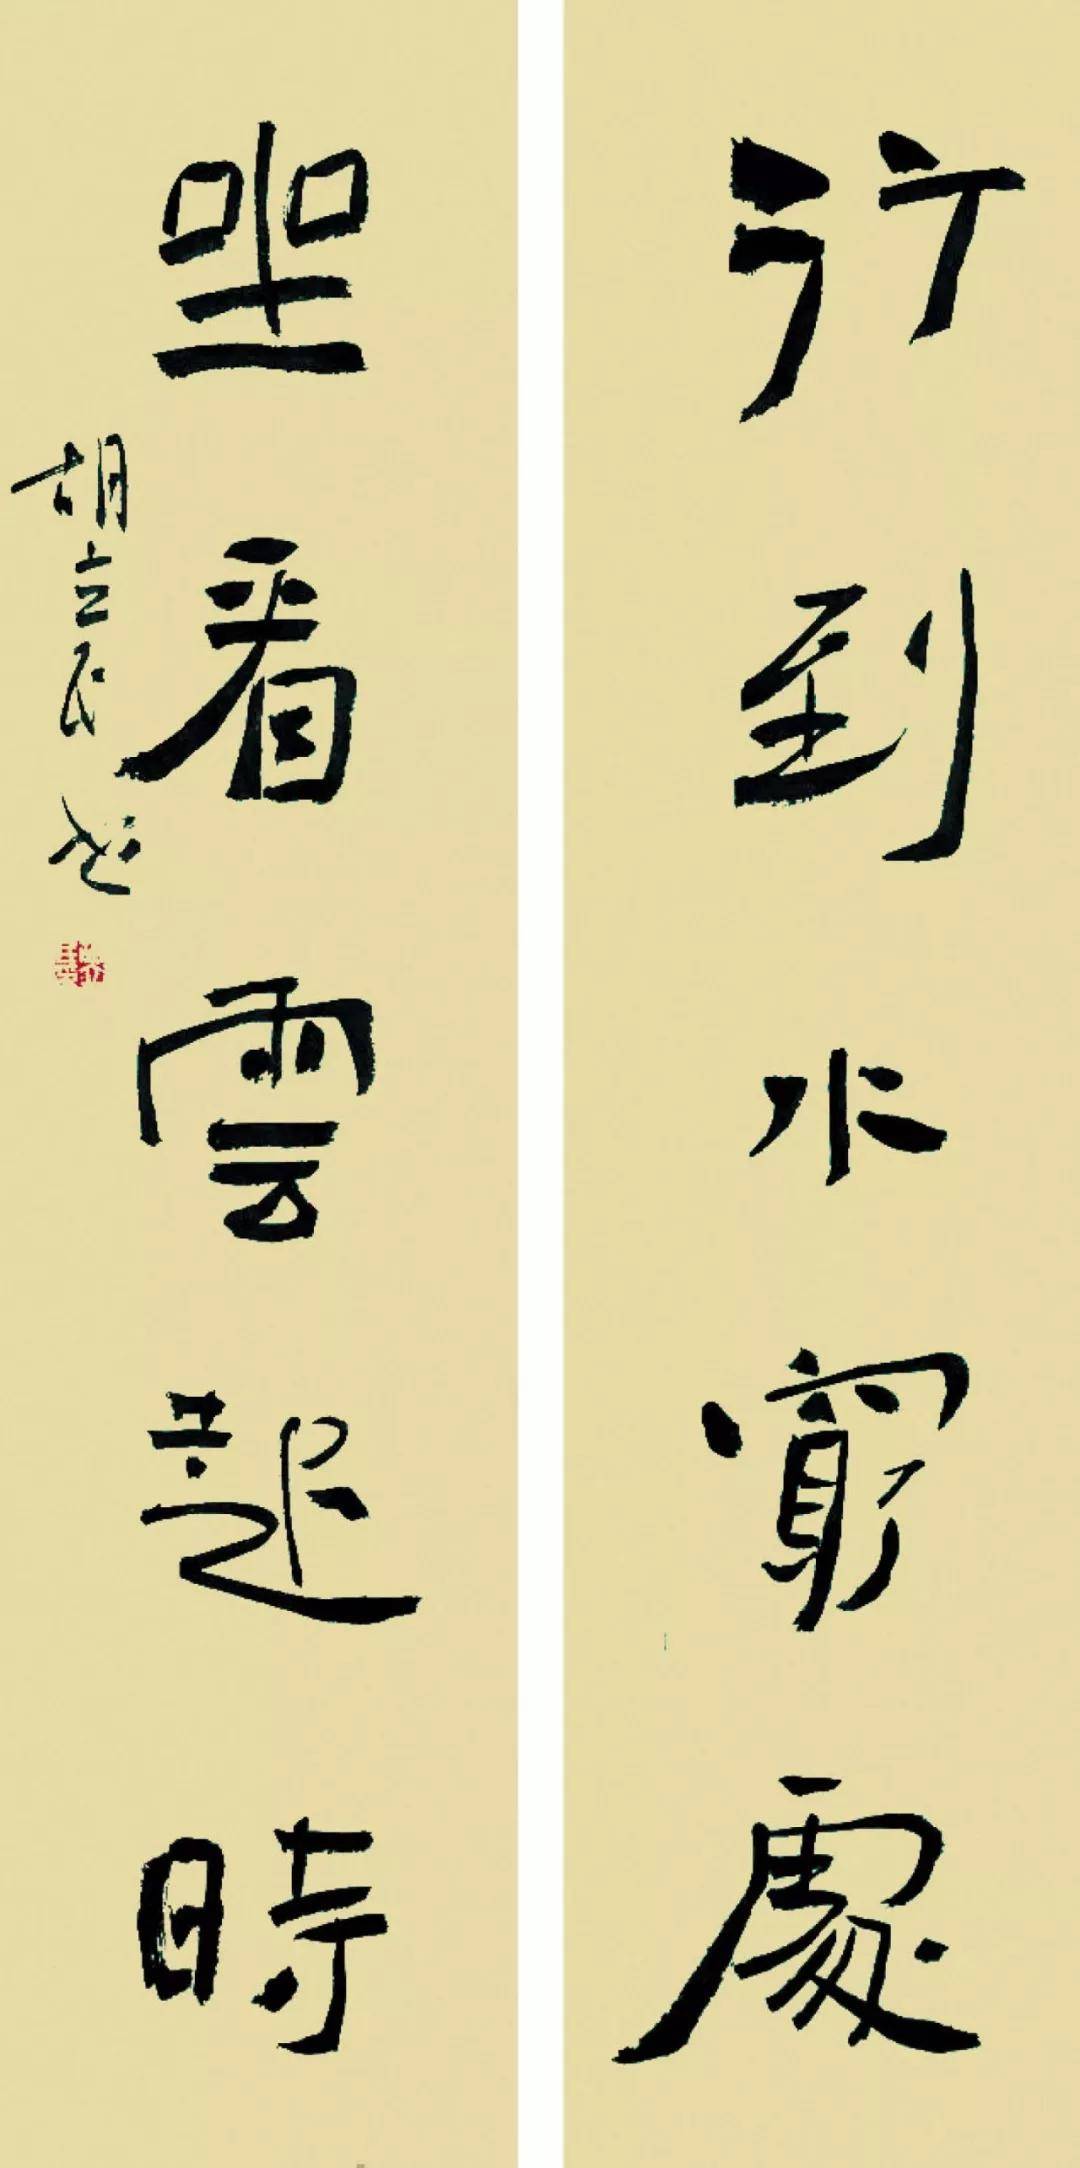 行到水窮處
坐看雲起時
胡立民书